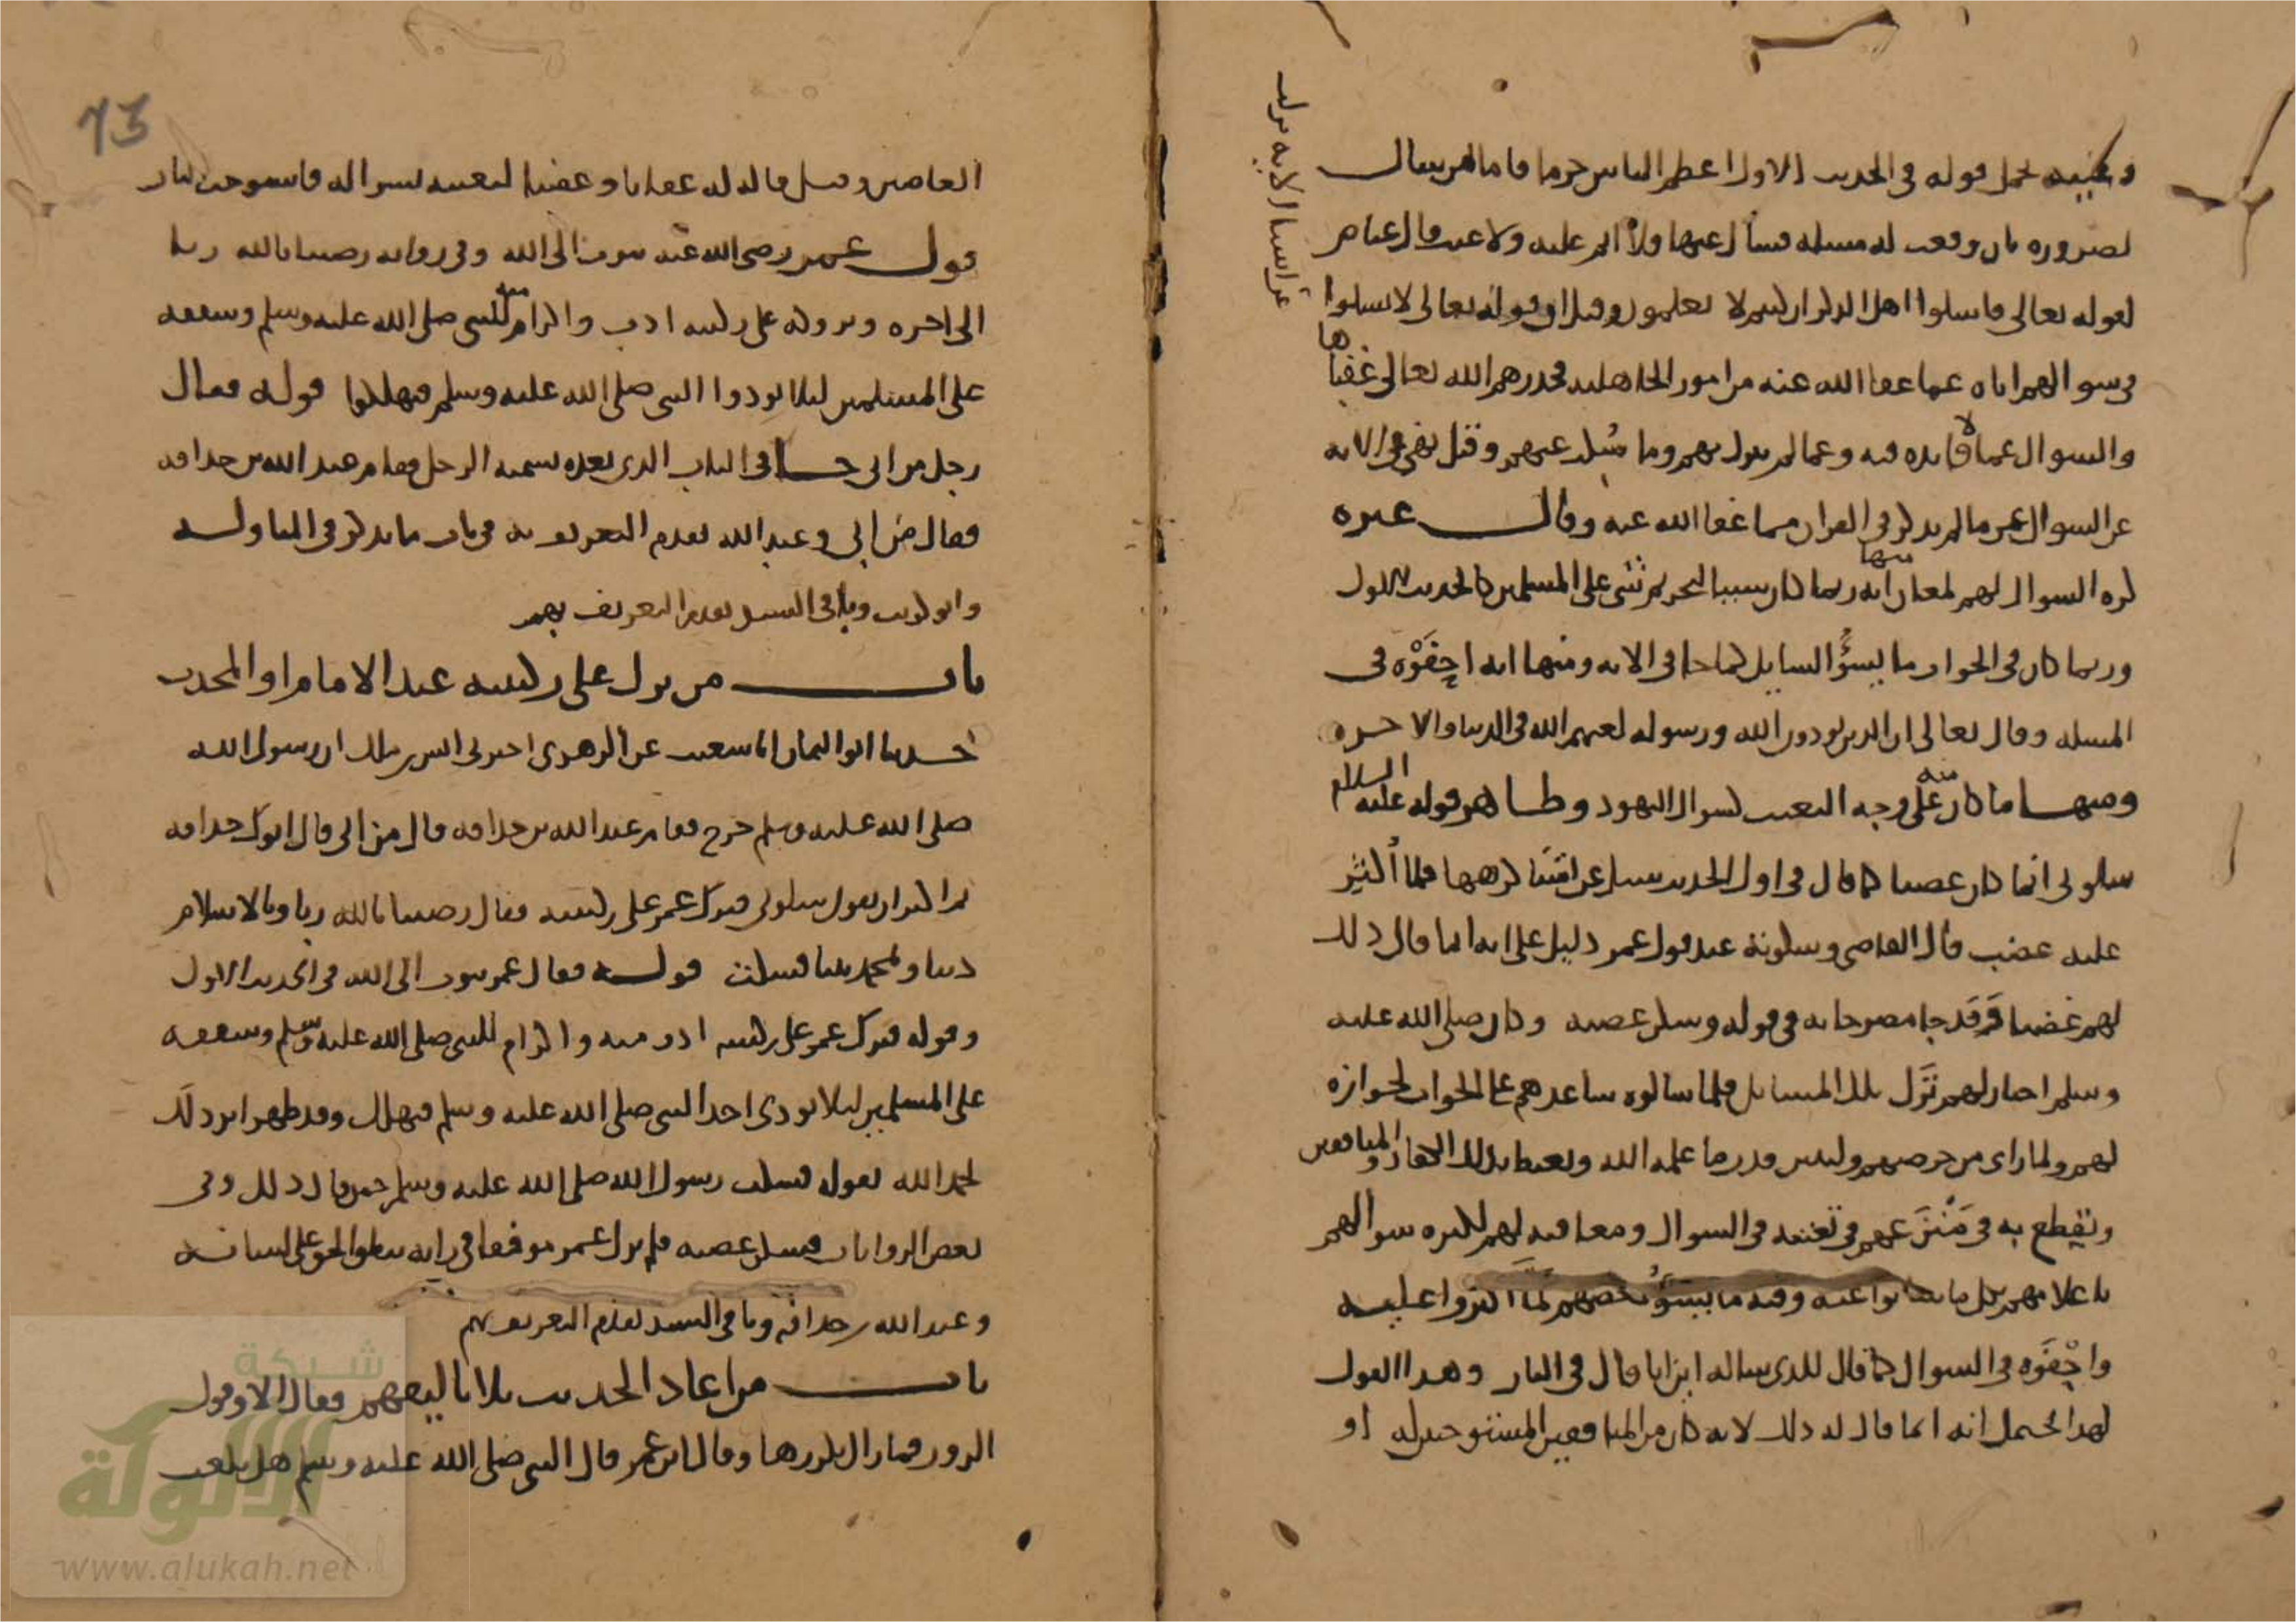 وعليه يحمل قوله في الحديث الاول اعظم الناس جرما فاما من سال
لضروره بان وقعت له مسله فسال عنها فلا اثم عليه ولا عتب قال
لقوله تعالى فاسلوا اهل الذكر ان كنتم لا تعلمون وقيل ان قوله تعالى لا تسلوا
عن اشيا الايه نزلت
في سوالهم اياه عما عفا الله عنه من امور الجاهليه فحذرهم الله تعالى
والسوال عما لا فايده فيه وعما لم ينزل بهم وما وقيل نهى في الايه
عن السوال عن ما لم يذكر في القران مما عفا الله عنه وقال غيره
كره السوال لهم لمعان منها انه ربما كان سببا لتحريم شي على المسلمين كالحديث الاول
وربما كان في الجواب ما يسؤ السايل كما جا في الايه ومنها انه احفوه في
المسله وقال تعالى ان الذين يوذون الله ورسوله لعنهم الله في الدنيا والاخره
ومنها ما كان منه على وجه التعنت كسوال اليهود وظاهر قوله عليه السلام
سلوني انما كان غضبا كما قال في اول الحديث سيل عن اشيا كرهها فلما اكثر
عليه غضب قال القاضي وسكوته عند قول عمر دليل على انه انما قال ذلك
لهم غضبا وقد جا مصرحا به في قوله وسكن غضبه وكان صلى الله عليه
وسلم اختار لهم ترك تلك المسايل فلما سالوه ساعدهم على الجواب لجوازه
لهم ولما راى من حرصهم وليبين قدر ما علمه الله ويغيظ بذلك الكفار والمنافقين
ويقطع به في عنهم في تعنته في السوال ومعاقبه لهم لكثره سوالهم
باعلامهم بكل ما سالوا عنه وفيه ما يسؤ بعضهم لما اكثروا عليه
واحفوه في السوال كما قال للذي ساله اين انا قال في النار وهذا القول
لهذا يحتمل انه انما قال له ذلك لانه كان من المنافقين المستوجبين له او
73
العاصين وقيل قاله له عقابا وغضبا لتعنته بسواله فاستوجب النار
قول عمر رضي الله عنه نتوب الى الله وفي روايه رضينا بالله ربا
الى اخره وبروكه على ركبتيه ادب واكرام منه للنبي صلى الله عليه وسلم وشفقه
على المسلمين ليلا يوذوا النبي صلى الله عليه وسلم فيهلكوا قوله فقال
رجل من ابي جا في الباب الذي بعده تسميه الرجل فقام عبد الله بن حذافه
فقال من ابي وعبد الله تقدم التعريف به في باب ما يذكر في المناوله
وابو كريب وباقي السند تقدم التعريف بهم
باب من برك على ركبتيه عند الامام او المحدث
حدثنا ابو اليمان انا شعيب عن الزهري اخبرني انس بن مالك ان رسول الله
صلى الله عليه وسلم خرج فقام عبد الله بن حذافه قال من ابي قال ابوك حذافه
ثم اكثر ان يقول سلوني فبرك عمر على ركبتيه فقال رضينا بالله ربا وبالاسلام
دينا وبمحمد نبيا فسكت قوله فقال عمر نتوب الى الله في الحديث الاول
وقوله فبرك عمر على ركبتيه ادب منه واكرام للنبي صلى الله عليه وسلم وشفقه
على المسلمين ليلا يوذي احد النبي صلى الله عليه وسلم فيهلك وقد ظهر اثر ذلك
بحمد الله لقوله فسكت رسول الله صلى الله عليه وسلم حين قال ذلك وفي
بعض الروايات فسكن غضبه فلم يزل عمر موفقا في رايه ينطق الحق على لسانه
وعبد الله بن حذافه وباقي السند تقدم التعريف بهم
باب من اعاد الحديث ثلاثا ليفهم فقال الا وقول
الزور فما زال يكررها وقال ابن عمر قال النبي صلى الله عليه وسلم هل بلغت
شبكة
الألوكة
www.alukah.net